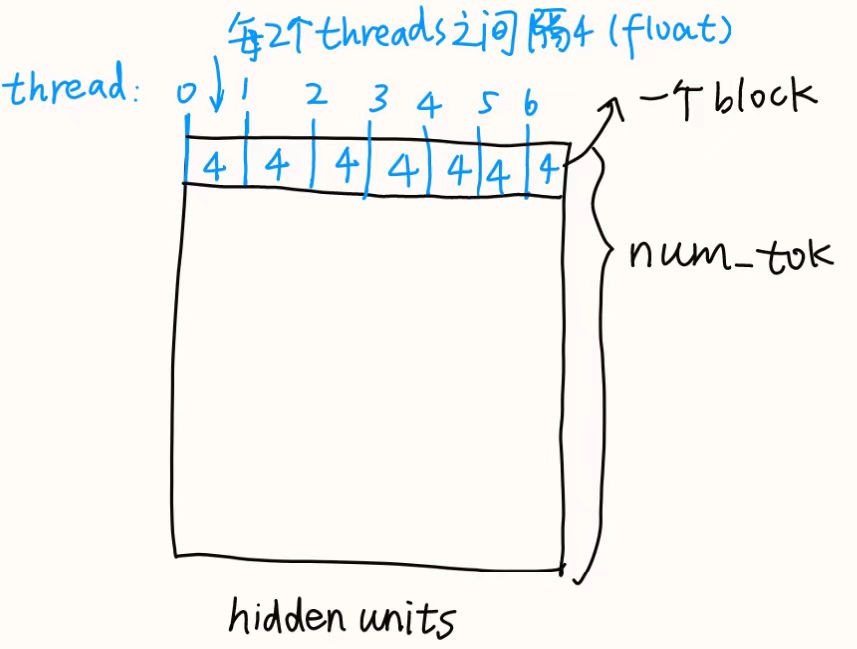 每2个threads之间隔4(float)
thread: 0 1 2 3 4 5 6
一个block
4 4 4 4 4 4 4
num_tok
hidden units